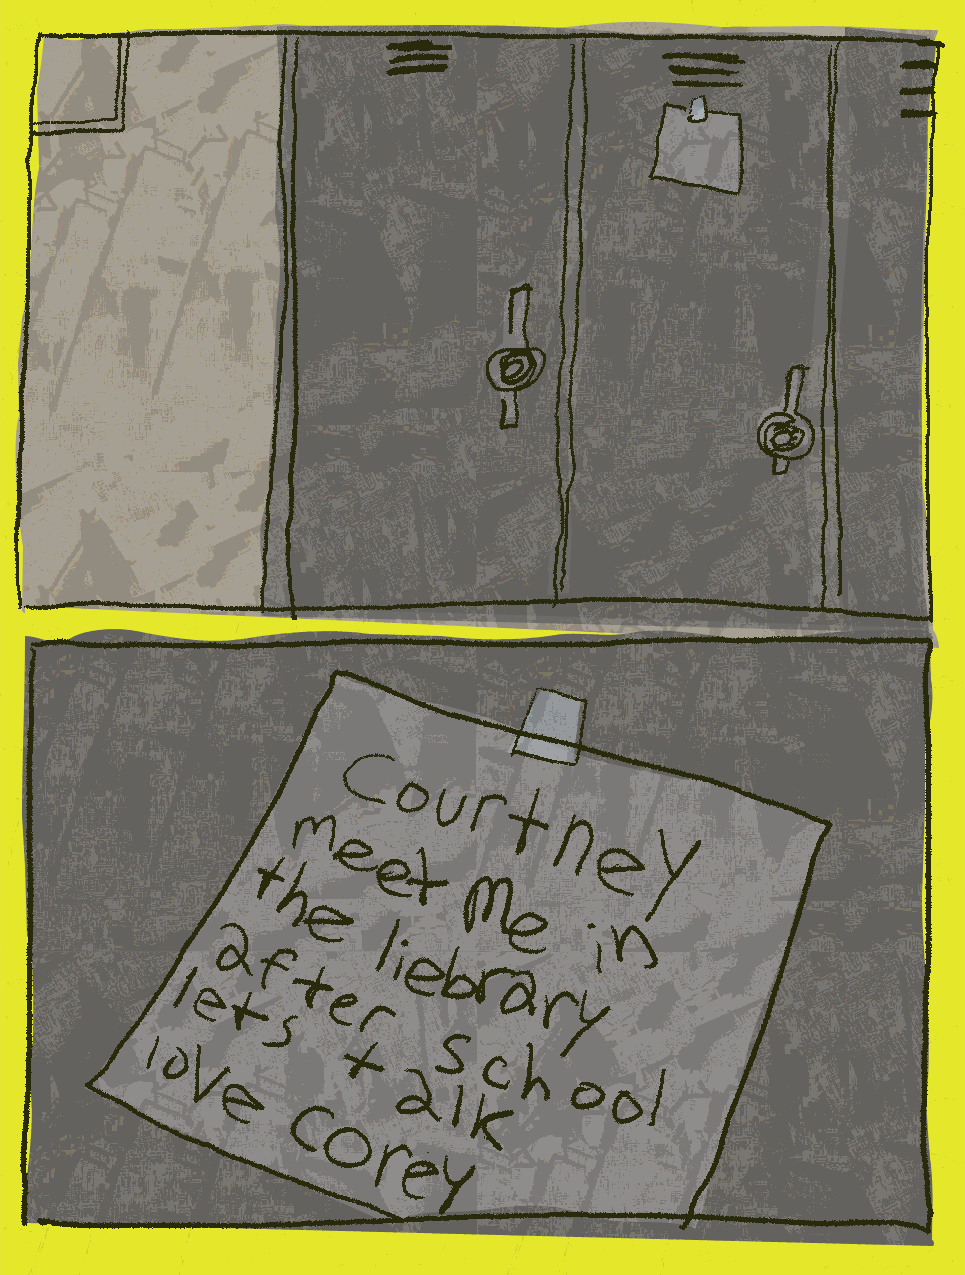 Courtney
meet me in
the liebrary
after school
lets talk
love corey